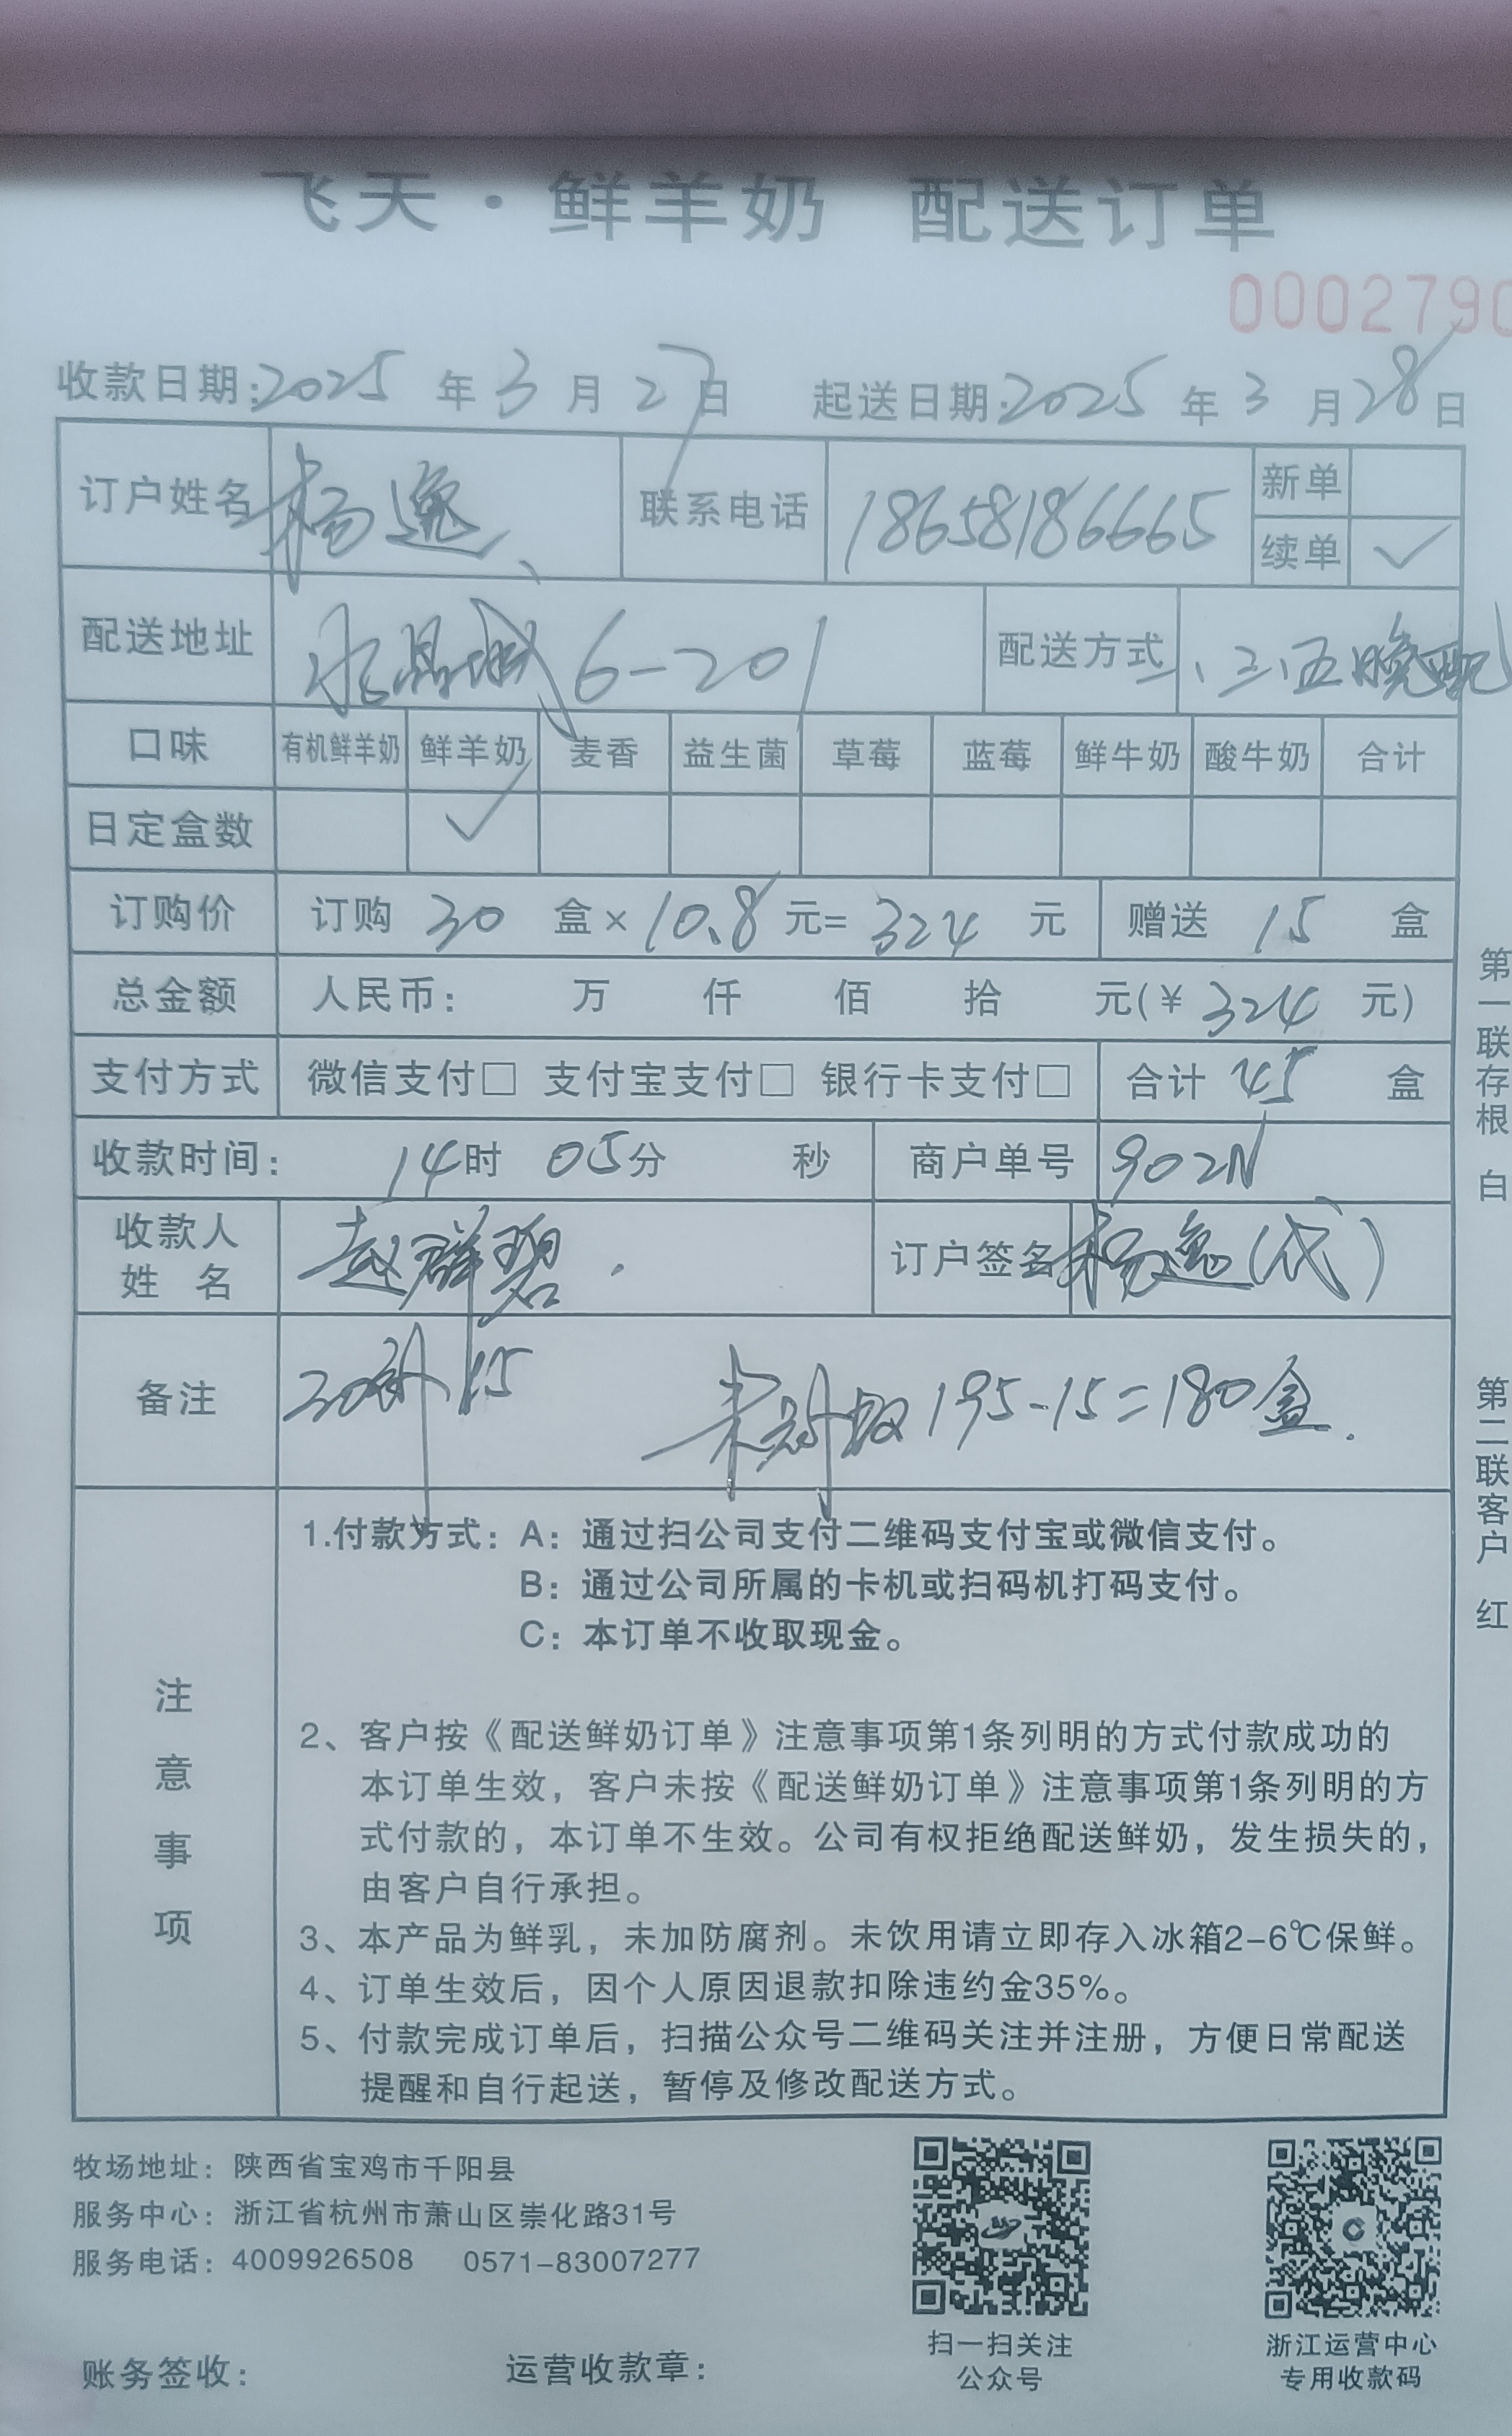 飞天·鲜羊奶 配送订单
0002790
收款日期:2025年3月27日 起送日期:2025年3月28日
订户姓名 杨逸 联系电话 18658186665 新单
续单 ✓
配送地址 水晶城6-201 配送方式 一、三、五晚配
口味 有机鲜羊奶 鲜羊奶 麦香 益生菌 草莓 蓝莓 鲜牛奶 酸牛奶 合计
日定盒数 ✓
订购价 订购 30 盒×10.8元=324元 赠送 15 盒
总金额 人民币: 万 仟 佰 拾 元(¥324元)
支付方式 微信支付□ 支付宝支付□ 银行卡支付□ 合计 45 盒
收款时间: 14时 05分 秒 商户单号 902N
收款人姓名 赵群碧 订户签名 杨逸(代)
备注 30 15 195-15=180盒.
注意事项
1.付款方式:A:通过扫公司支付二维码支付宝或微信支付。
B:通过公司所属的卡机或扫码机打码支付。
C:本订单不收取现金。
2、客户按《配送鲜奶订单》注意事项第1条列明的方式付款成功的
本订单生效,客户未按《配送鲜奶订单》注意事项第1条列明的方
式付款的,本订单不生效。公司有权拒绝配送鲜奶,发生损失的,
由客户自行承担。
3、本产品为鲜乳,未加防腐剂。未饮用请立即存入冰箱2-6℃保鲜。
4、订单生效后,因个人原因退款扣除违约金35%。
5、付款完成订单后,扫描公众号二维码关注并注册,方便日常配送
提醒和自行起送,暂停及修改配送方式。
第一联存根 白
第二联客户 红
牧场地址:陕西省宝鸡市千阳县
服务中心:浙江省杭州市萧山区崇化路31号
服务电话:4009926508 0571-83007277
扫一扫关注
公众号
浙江运营中心
专用收款码
账务签收: 运营收款章: